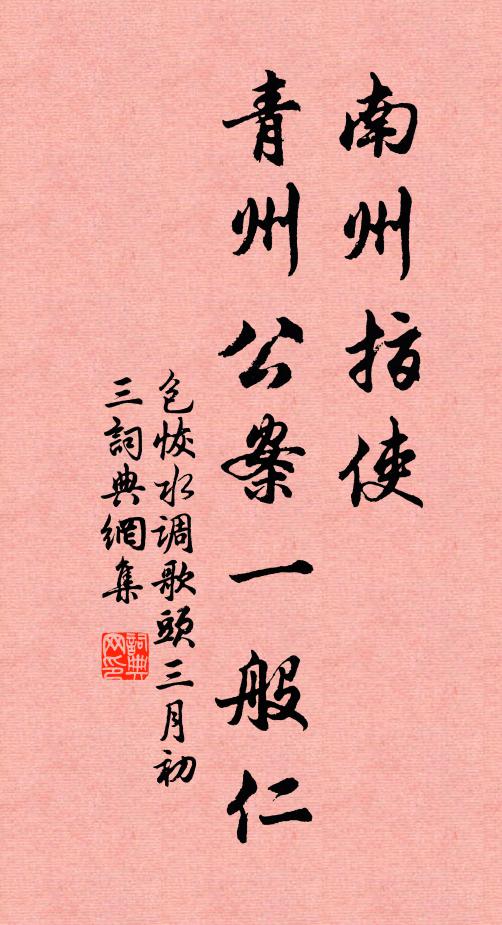 南州指使
青州公案一般仁
包恢水调歌頭三月初
三詞典網集
詞典
网印